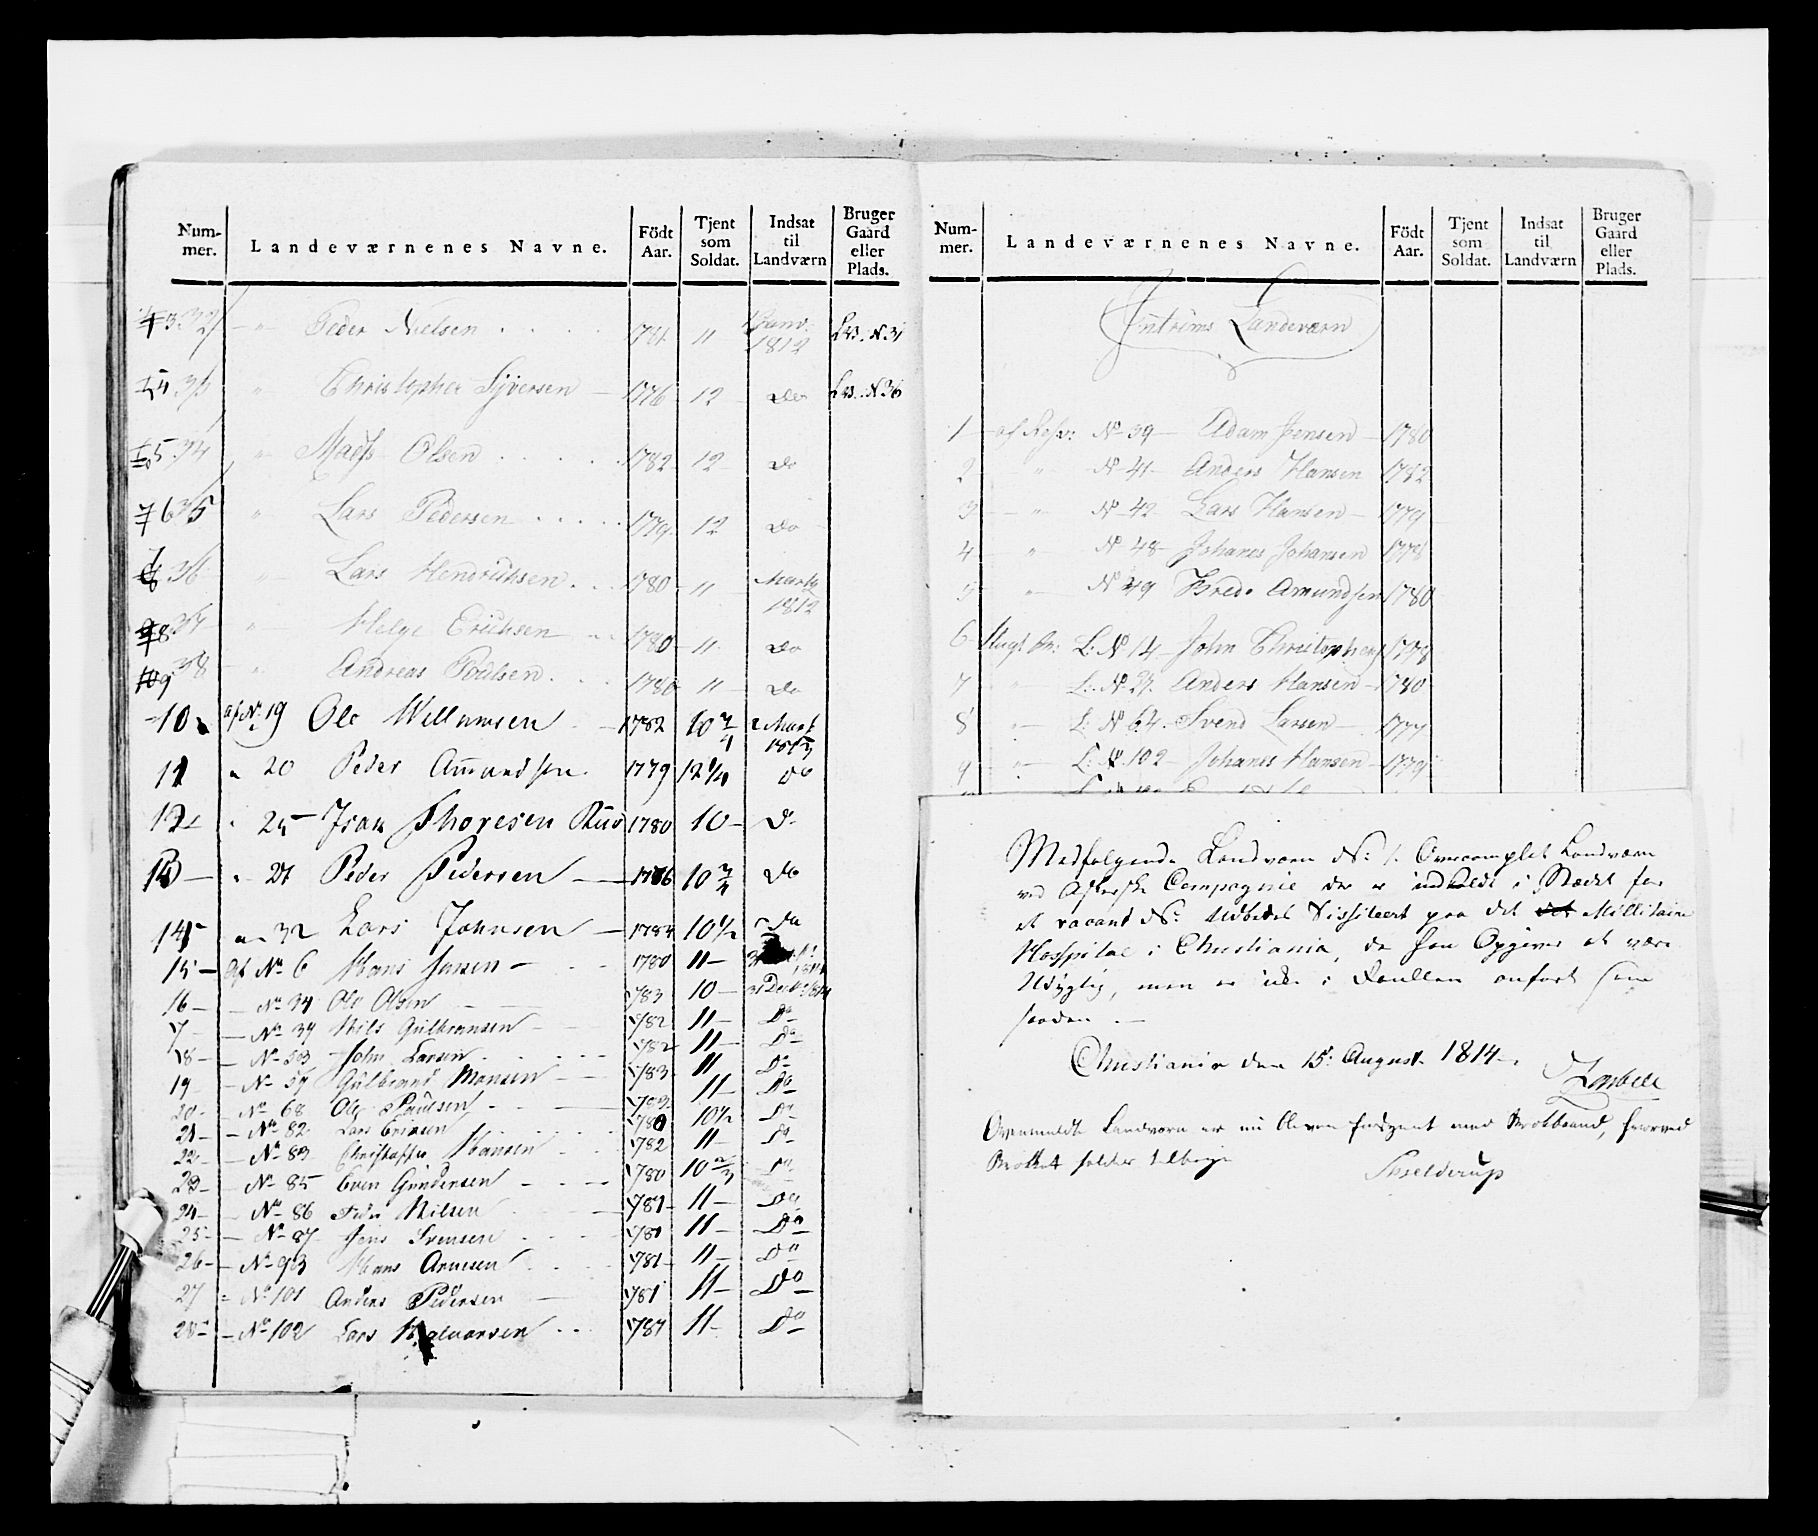 Num-
mer.
Landeværnenes Navne.
Födt
Aar.
Tjent
som
Soldat.
Indsat
til
Landværn
Bruger
Gaard
eller
Plads.
32 " Peder Nielsen 1781 11 1812 N. 31
" Christopher Syversen 1776 12 do N. 36
5 34 " Mads Olsen 1782 12 do
6 35 " Lars Pedersen 1779 12 do
36 " Lars Hendrichsen 1780 11 Marts 1812
8 " Helge Erichsen 1780 11 do
9 38 " Andreas Poulsen 1780 11 do
10 af No 19 Ole Willumsen 1782 10 3/4 Mart 1813
11 " 20 Peder Amundsen 1779 12 1/4 do
12 " 25 Isak Thoresen Ruud 1780 10 do
13 " 27 Peder Pedersen 1776 10 3/4 do
14 " 32 Lars Johnsen 1784 10 1/2 do
15 af No 6 Hans Jansen 1780 11
16 No 34 Ole Olsen 1783 10
17 No 37 Nils Gulbransen 1782 11 Do
18 No 53 John Larsen 1782 11 Do
19 No 57 Gulbrand Monsen 1783 11 Do
20 No 68 Ole Paulsen 1783 11 Do
21 No 82 Lars Ericsen 1780 10 1/2 Do
22 No 83 Christoffer Hansen 1782 11 Do
23 No 85 Even Gundersen 1780 10 2/3 Do
24 No 86 Peder Nilsen 1781 11 Do
25 No 87 Jens Svensen 1781 11 Do
26 No 93 Hans Arnesen 1781 11 Do
27 No 101 Anders Pedersen 1781 11 Do
28 No 102 Lars Halvorsen 1787 11 Do
Num-
mer.
Landeværnenes Navne.
Födt
Aar.
Tjent
som
Soldat.
Indsat
til
Landværn
Bruger
Gaard
eller
Plads.
Intrims Landeværn
1 af Resv: No 39 Adam Jensen 1780
2 " No 41 Anders Hansen 1782
3 " No 42 Lars Hansen 1779
4 " No 48 Johanes Johansen 1778
5 " No 49 Frede Amundsen 1780
6 L: No 14 John Christophers 1778
7 " L: No 27 Anders Hansen 1780
8 " L: No 64 Svend Larsen 1777
9 " L: No 102 Johanes Hansen 1779
Medfølgende Landværn No 1. Overcomplet Landværn
ved Askerske Compagnie der er indkaldt i Stædet for
et vacant No Udbedes Visiteert paa det Millitaire
Hosspital i Christiania, da han Opgiver at være
Udygtig, men er ikke i Roullen anført som
saadan.
Christiania den 15de August 1814
Ovenmeldte Landværn er nu befunden med Brokbaand, hvorved
Brokket holdes tilbage